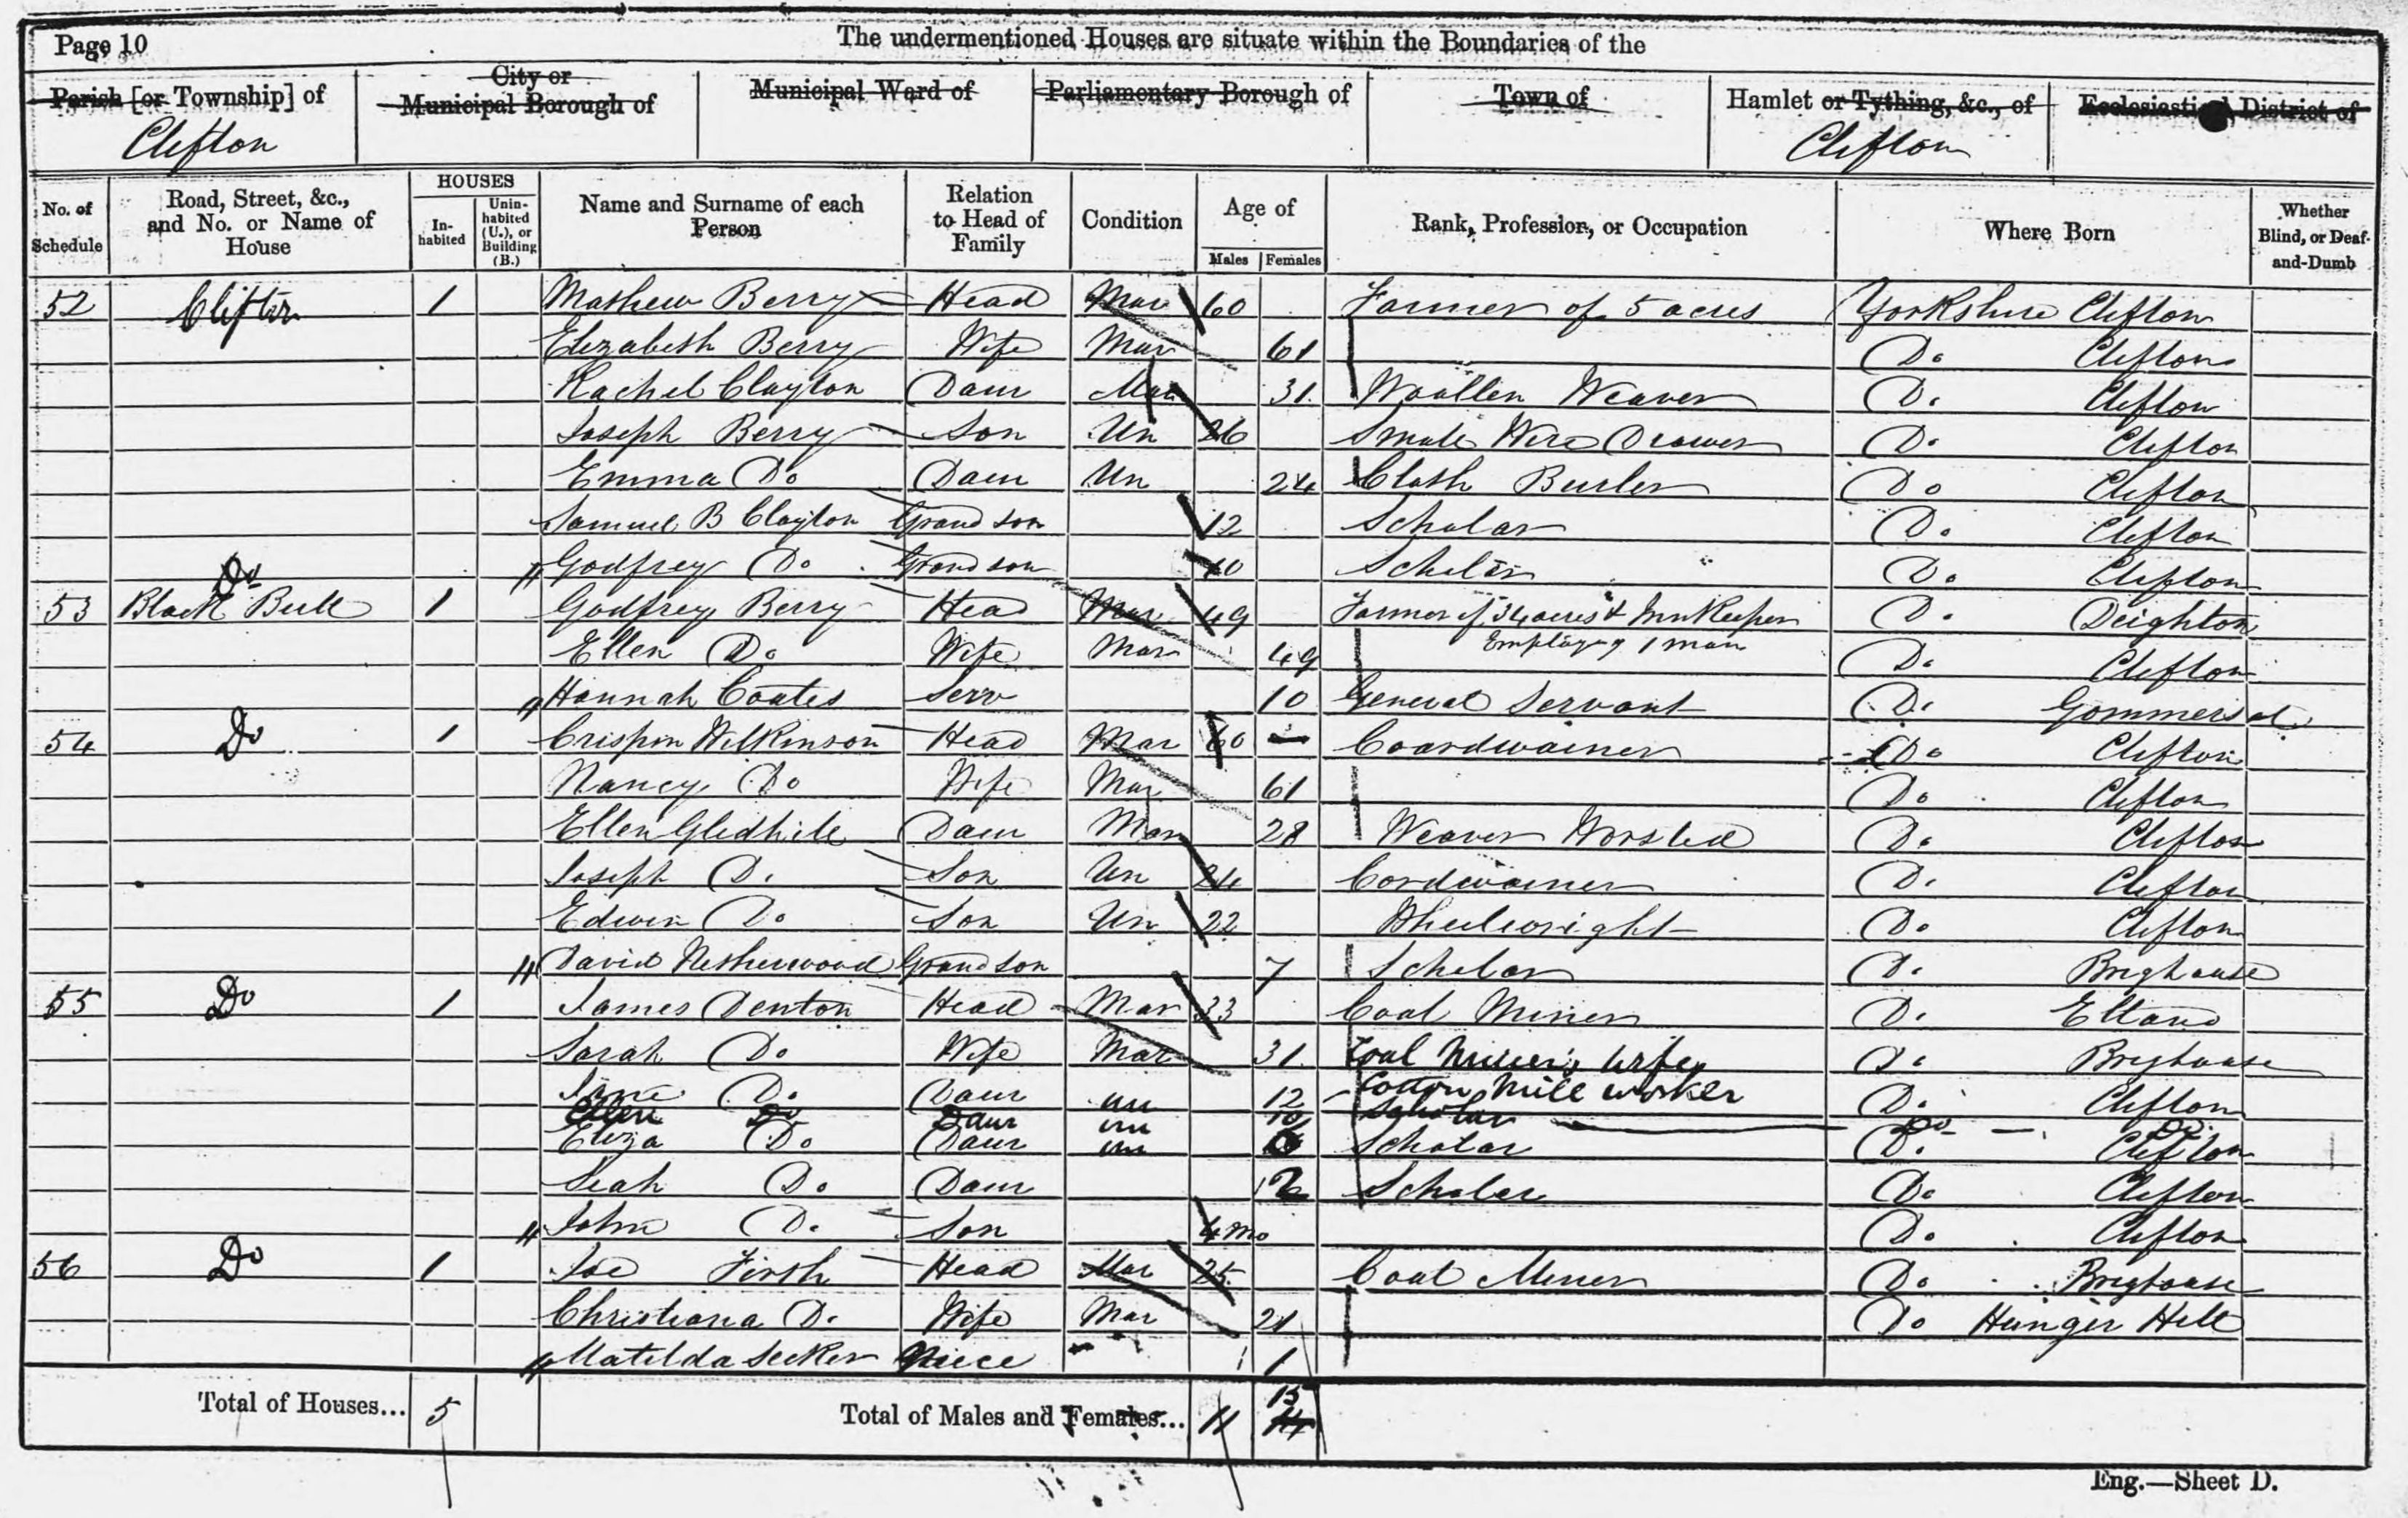 Page 10
The undermentioned Houses are situate within the Boundaries of the
Parish [or Township] of
City or Municipal Borough of
Municipal Ward of
Parliamentary Borough of
Town of
Hamlet or Tything, &c., of
Ecclesiastical District of
Clifton
Clifton
No. of Schedule
Road, Street, &c., and No. or Name of House
HOUSES
In-habited
Unin-habited (U.), or Building (B.)
Name and Surname of each Person
Relation to Head of Family
Condition
Age of
Males
Females
Rank, Profession, or Occupation
Where Born
Whether Blind, or Deaf-and-Dumb
52 Clifton 1 Mathew Berry Head Mar 60 Farmer of 5 acres Yorkshire Clifton
Elizabeth Berry Wife Mar 61 Do Clifton
Rachel Clayton Daur Mar 31 Woollen Weaver Do Clifton
Joseph Berry Son Un 26 Small Wire Drawer Do Clifton
Emma Do Daur Un 24 Cloth Burler Do Clifton
Samuel B Clayton Grand son 12 Scholar Do Clifton
Godfrey Do Grand son 10 Scholar Do Clifton
53 Do Black Bull 1 Godfrey Berry Head Mar 49 Farmer of 34 acres & Innkeeper Do Deighton
Employing 1 man
Ellen Do Wife Mar 49 Do Clifton
Hannah Coates Serv 10 General Servant Do Gommersal
54 Do 1 Crispin Wilkinson Head Mar 60 Coardwainer Do Clifton
Nancy Do Wife Mar 61 Do Clifton
Ellen Gledhile Daur Mar 28 Weaver Worsted Do Clifton
Joseph Do Son Un 24 Cordwainer Do Clifton
Edwin Do Son Un 22 Wheelwright Do Clifton
David Netherwood Grand son 7 Scholar Do Brighouse
55 Do 1 James Denton Head Mar 33 Coal Miner Do Elland
Sarah Do Wife Mar 31 Coal Miner's wife Do Brighouse
Do Daur un 12 Cotton Mill worker Do Clifton
Ellen Do Daur un 10 Scholar Do Do
Eliza Do Daur un Scholar Do Clifton
Leah Do Daur Scholar Do Clifton
John Do Son 4 mo Do Clifton
56 Do 1 Joe Firth Head Mar 25 Coal Miner Do Brighouse
Christiana Do Wife Mar 21 Do Hunger Hill
Matilda Secker Niece 1
Total of Houses... 5
Total of Males and Females... 11 15 14
Eng.—Sheet D.